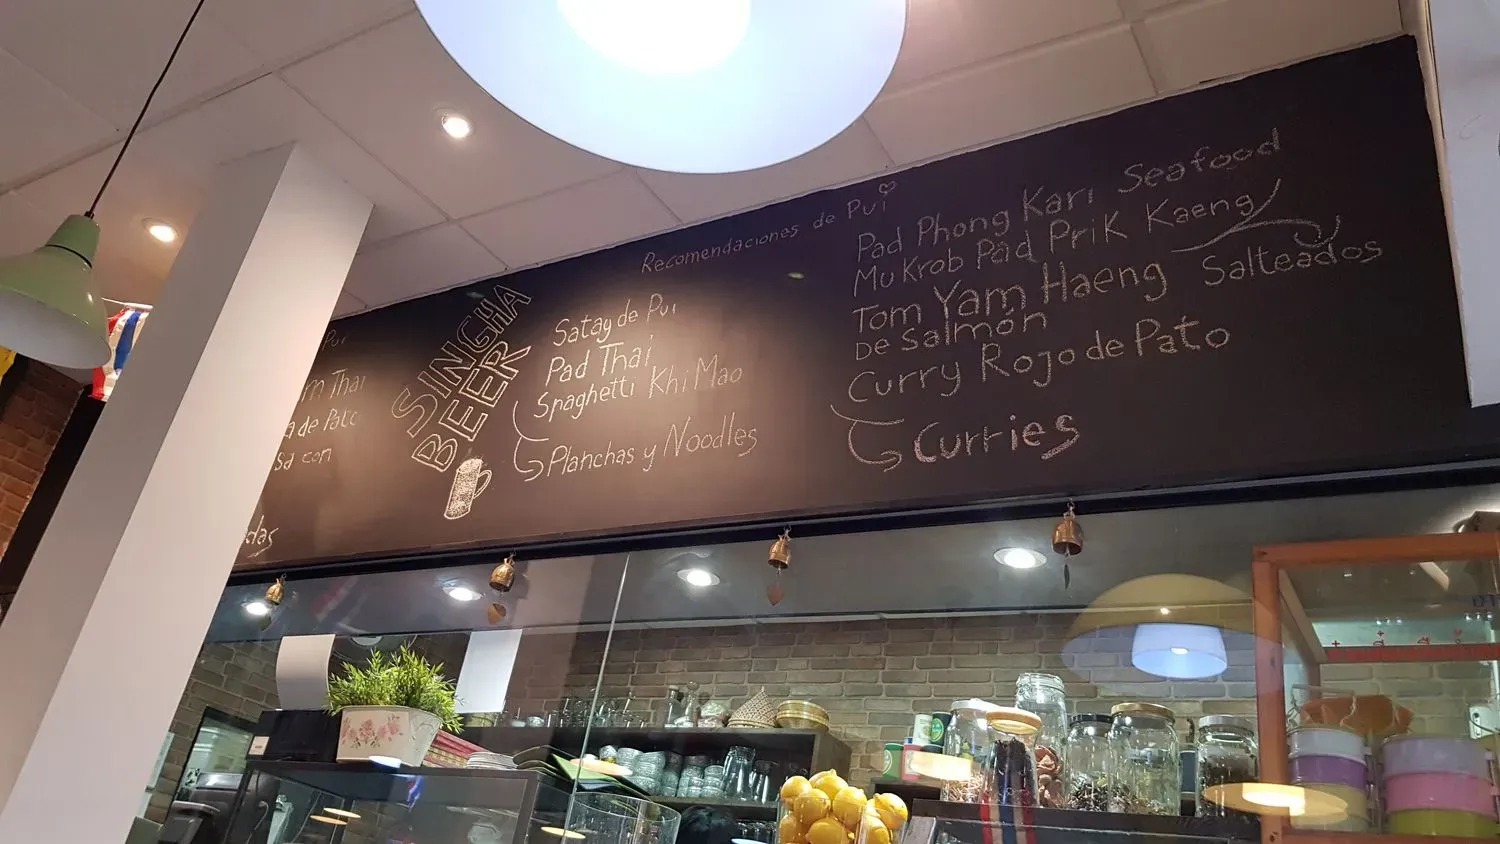 Recomendaciones de Pui
Pui
m Thai
a de Pato
sa con
das
SINGHA
BEER
Satay de Pui
Pad Thai
Spaghetti Khi Mao
Planchas y Noodles
Pad Phong Kari Seafood
Mu Krob Pad Prik Kaeng
Tom Yam Haeng Salteados
De Salmón
Curry Rojo de Pato
Curries